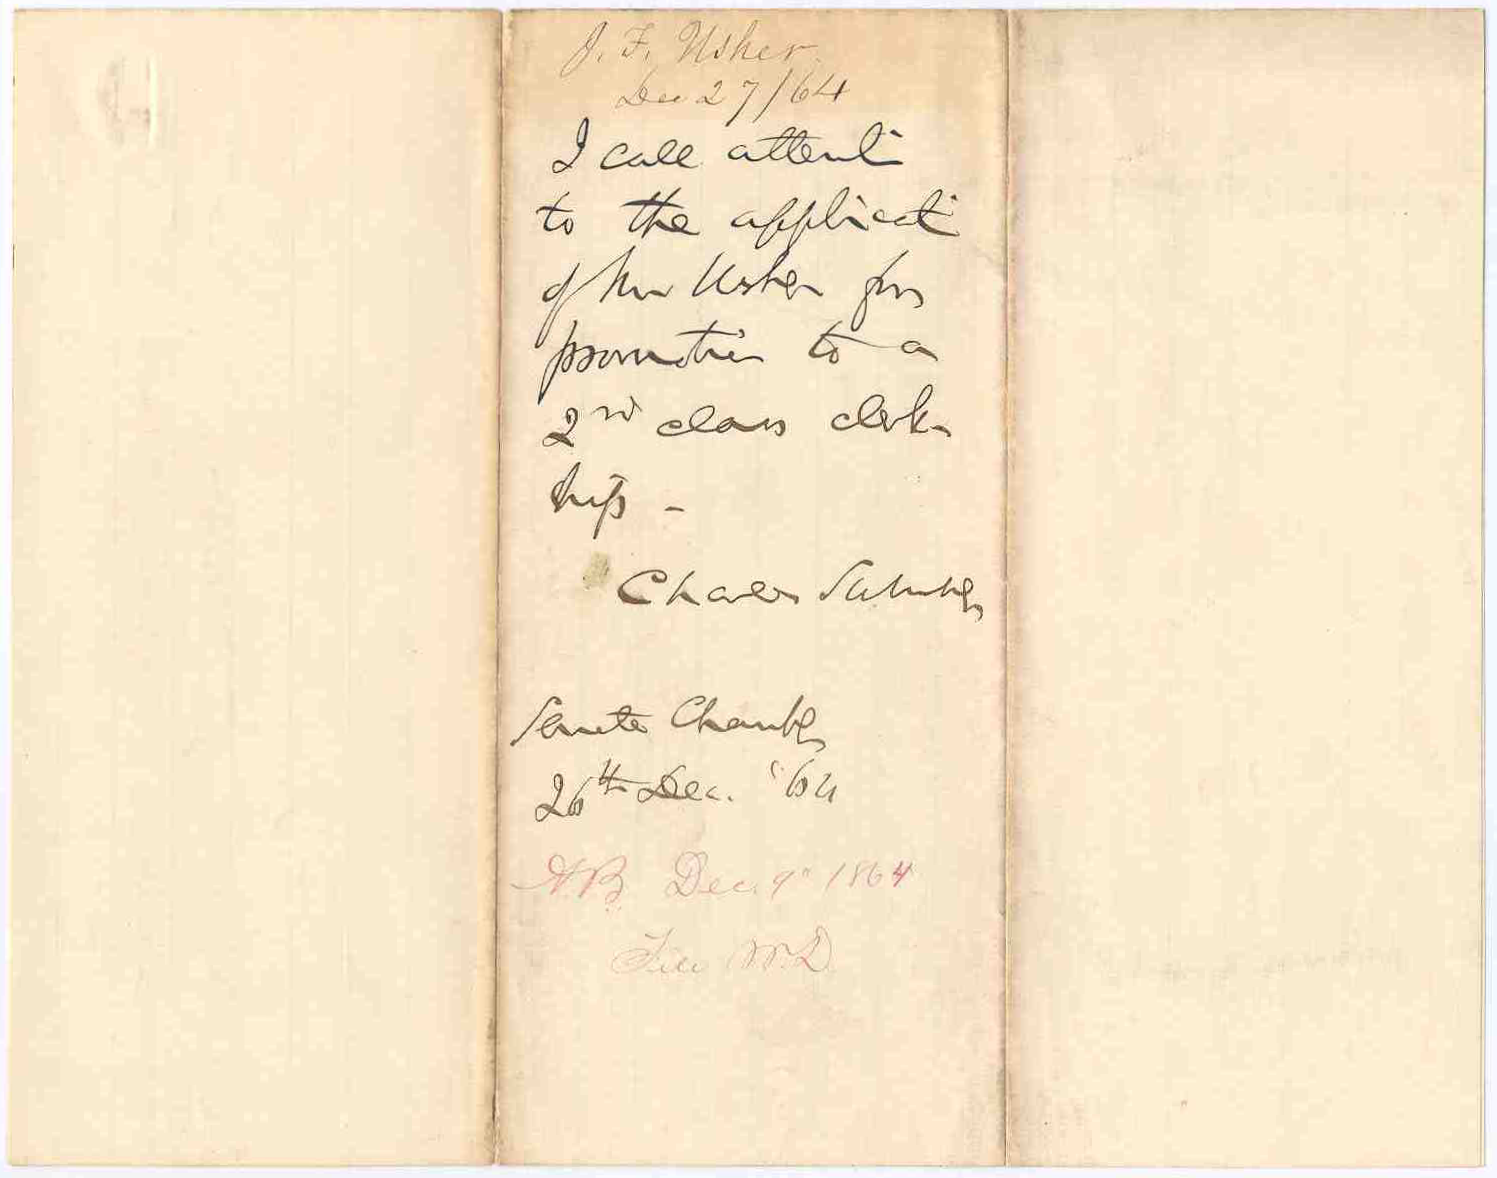 J. F. Usher
Dec 27/64
I call attenti
to the applicati
of Mr Usher for
promotion to a
2nd class clerk-
ship -
Charles Sumner
Senate Chamber
26th Dec. '64
Dec. 9" 1864
File